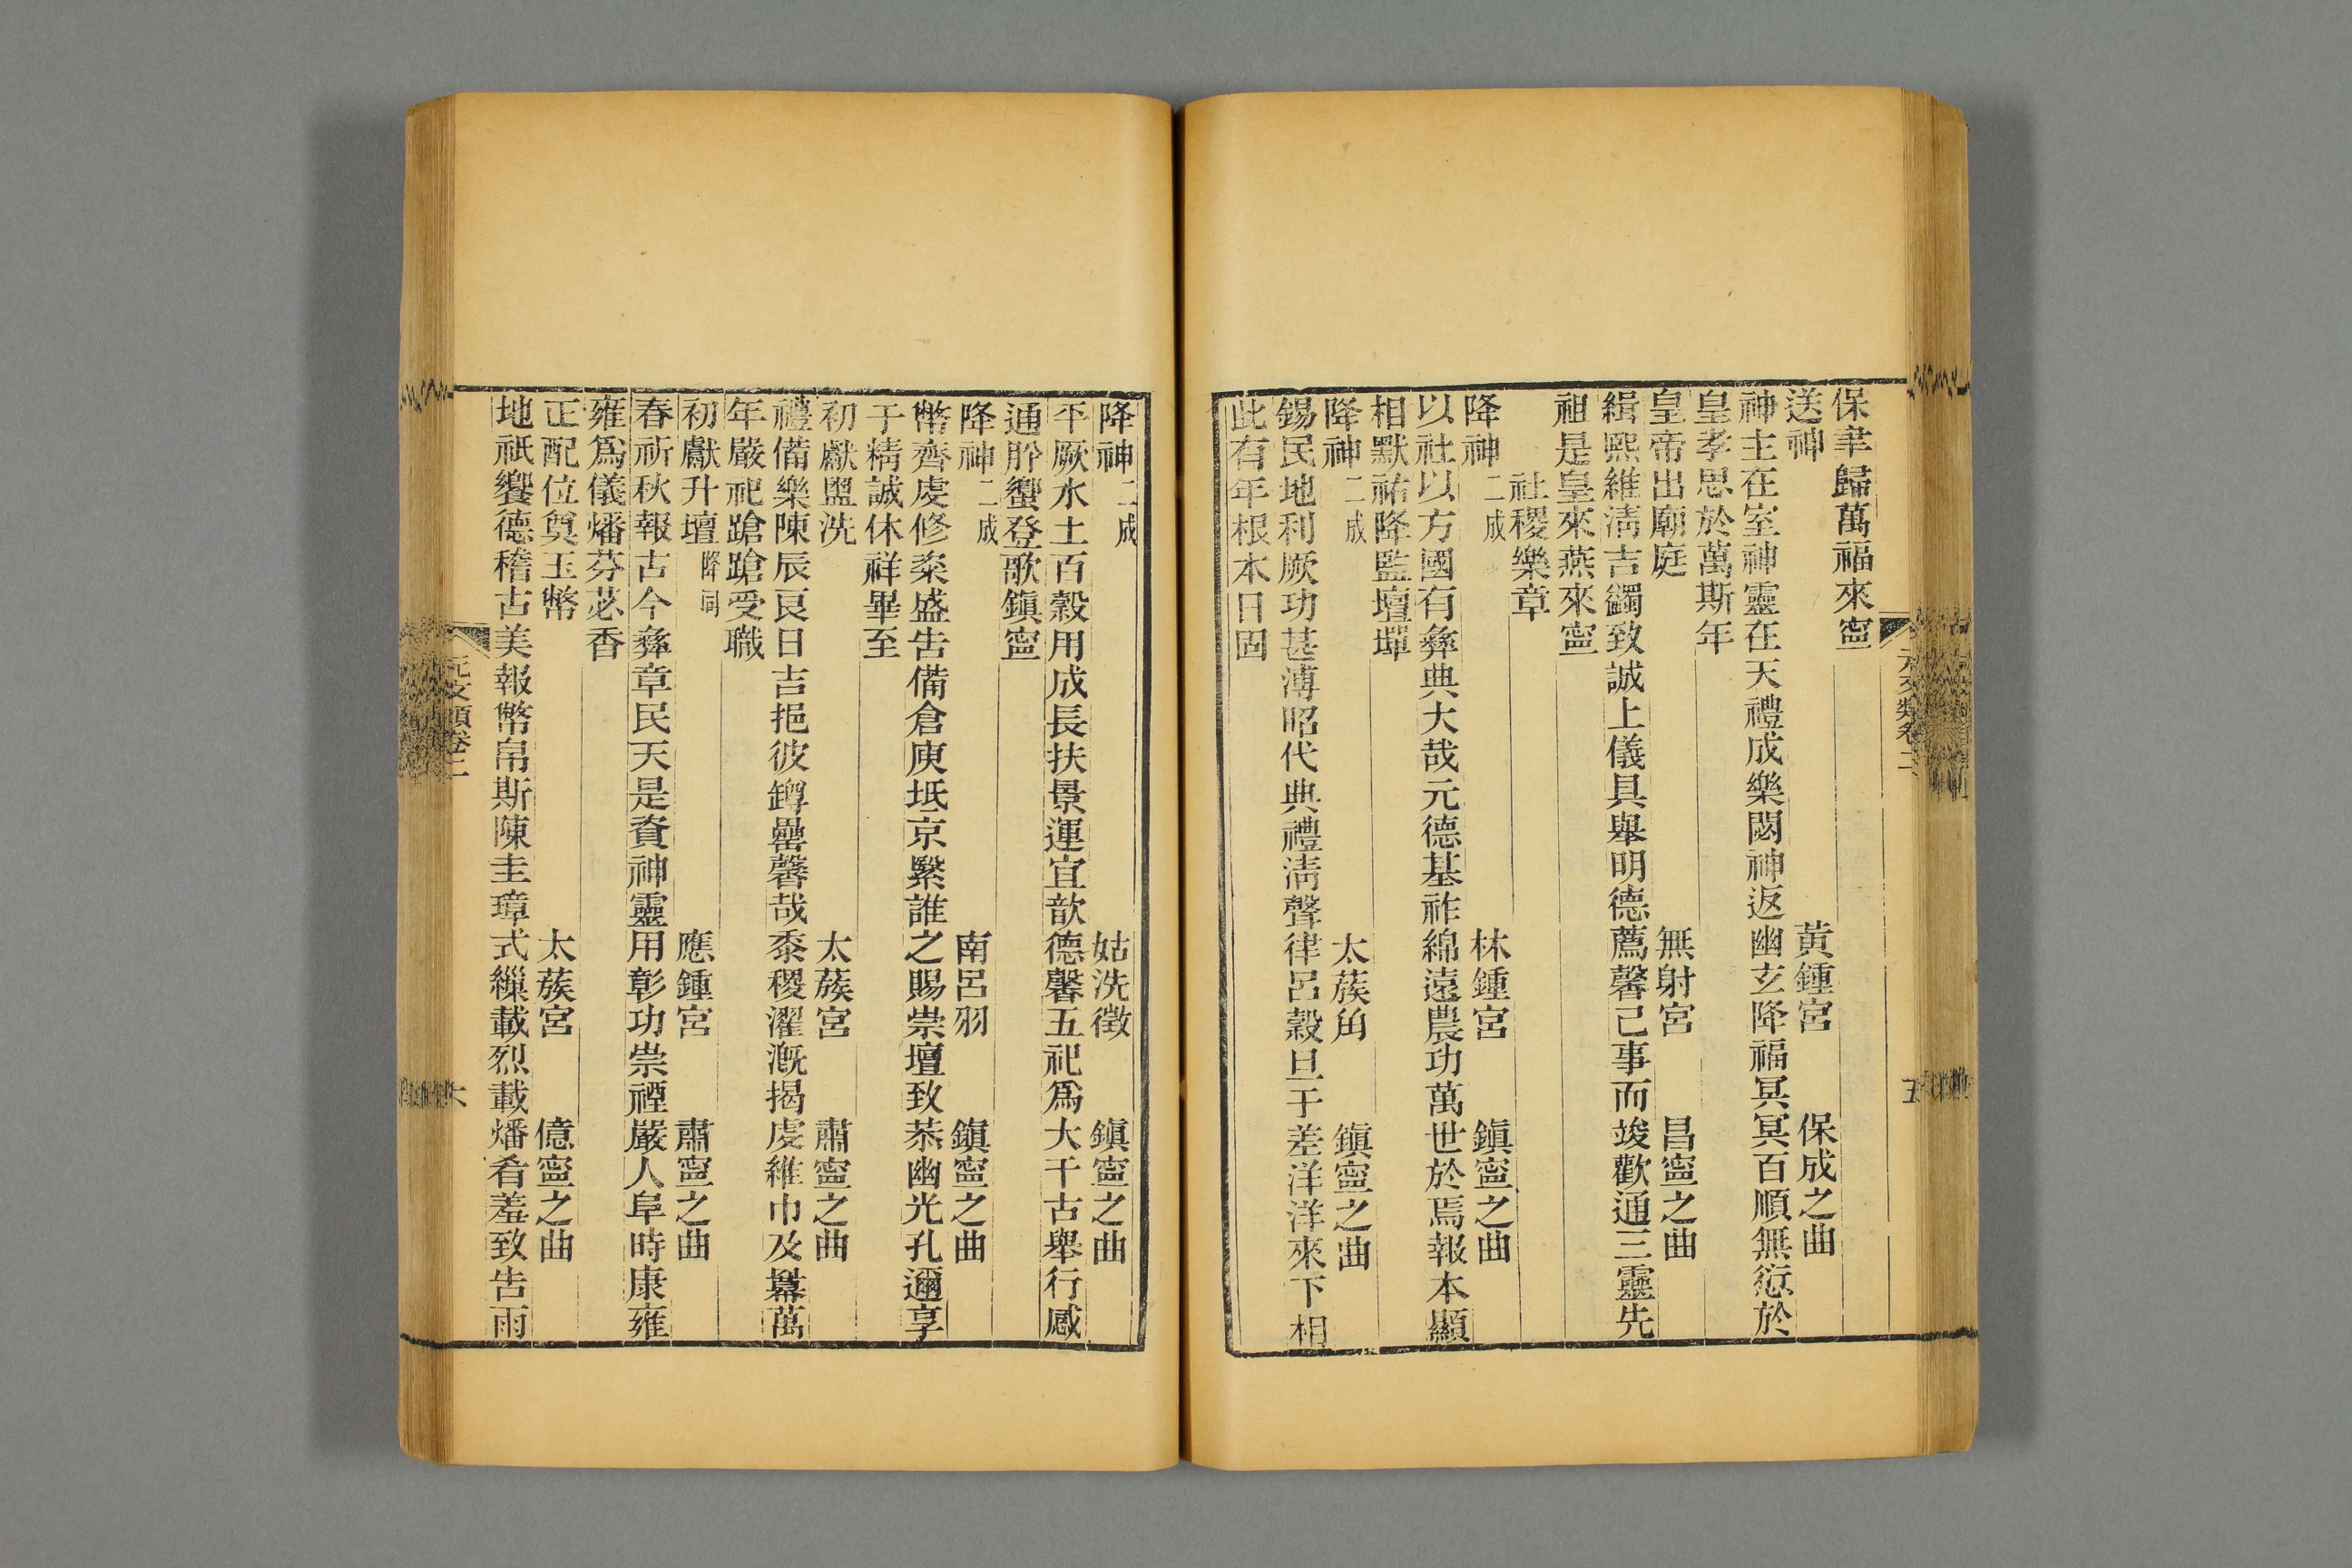 保聿歸萬福來寧
送神 黃鍾宮 保成之曲
神主在室神靈在天禮成樂闋神返幽玄降福冥冥百順無愆於
皇孝思於萬斯年
皇帝出廟庭 無射宮 昌寧之曲
緝熙維淸吉蠲致誠上儀具舉明德薦馨已事而竣歡通三靈先
祖是皇來燕來寧
社稷樂章
降神二成 林鍾宮 鎭寧之曲
以社以方國有彝典大哉元德基祚綿遠農功萬世於焉報本顯
相默祐降監壇墠
降神二成 太蔟角 鎭寧之曲
錫民地利厥功甚溥昭代典禮淸聲律呂穀旦于差洋洋來下相
此有年根本日固
降神二成 姑洗徵 鎭寧之曲
平厥水土百穀用成長扶景運宜歆德馨五祀爲大千古舉行感
通肸蠁登歌鎭寧
降神二成 南呂羽 鎭寧之曲
幣齊虔修粢盛告備倉庾坻京繄誰之賜崇壇致恭幽光孔邇享
于精誠休祥畢至
初獻盥洗 太蔟宮 肅寧之曲
禮備樂陳辰良日吉挹彼罇罍馨哉黍稷濯漑揭虔維巾及羃萬
年嚴祀蹌蹌受職
初獻升壇降同 應鍾宮 肅寧之曲
春祈秋報古今彝章民天是資神靈用彰功崇禋嚴人阜時康雍
雍爲儀燔芬苾香
正配位奠玉幣 太蔟宮 億寧之曲
地祇饗德稽古美報幣帛斯陳圭璋式繅載烈載燔肴羞致告雨
元文類卷二
五
元文類卷二
六